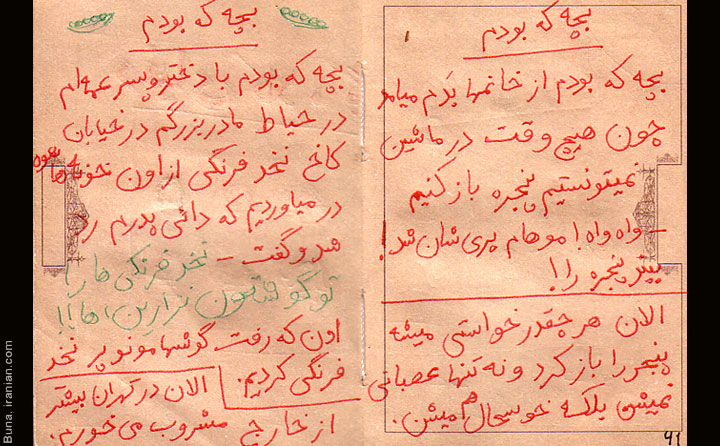 بچه که بودم
بچه که بودم از خانمها بدم میامد
چون هیچ وقت در ماشین
نمیتونستیم پنجره باز کنیم
ـ واه واه! موهام پری شان شد!
ببند پنجره را!
الان هر چقدر خواستی میشه
پنجره را باز کرد و نه تنها عصبانی
نمیشن بلکه خوشحال هم میشن.
41
بچه که بودم
بچه که بودم با دختر و پسر عمه ام
در حیاط مادر بزرگم در خیابان
کاخ نخد فرنگی از اون
در میاوردیم که دائی پدرم رد
شد و گفت ـ نخد فرنگی ها را
تو گوشتون نزارین، ها!!!
اون که رفت گوشها مونو پر نخد
فرنگی کردیم.
الان در تهران بیشتر
از خارج مشروب می خورم.
Buna, iranian.com